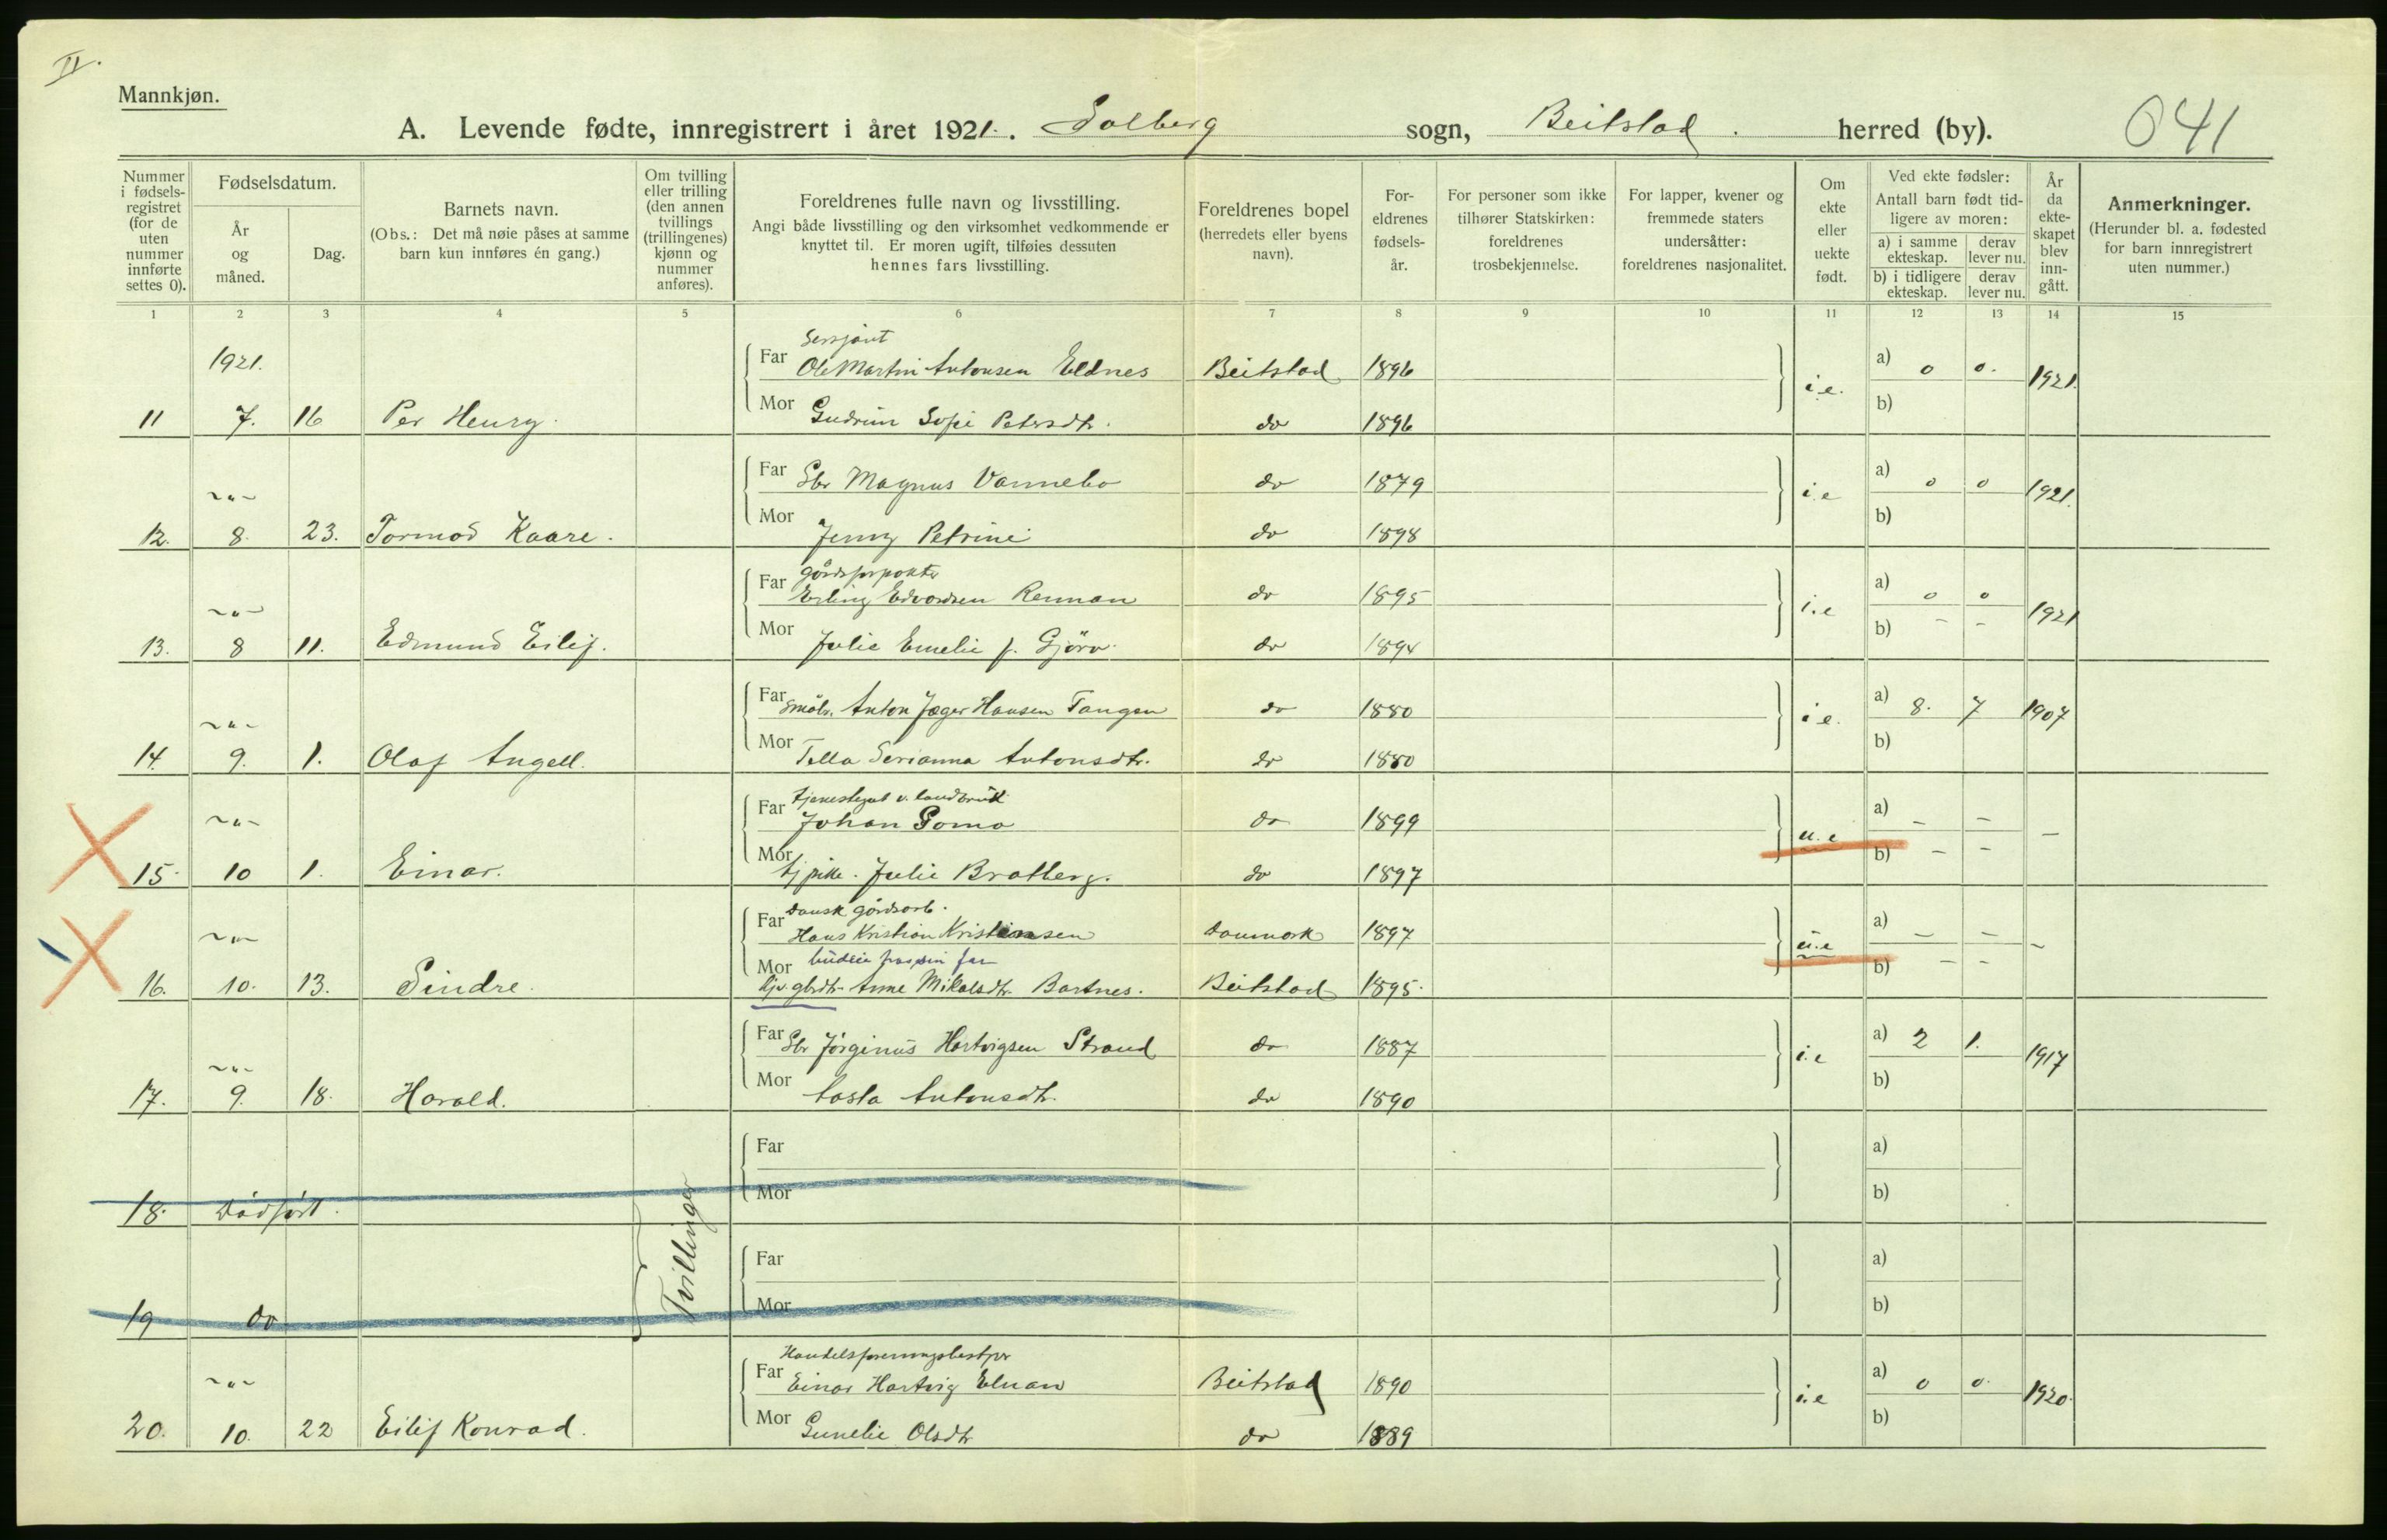 II.
Mannkjøn.
A. Levende fødte, innregistrert i året 1921. Solberg sogn, Beitstad. herred (by). 041
Nummer i fødsels-registret (for de uten nummer innførte settes 0).
Fødselsdatum.
År og måned.
Dag.
Barnets navn.
(Obs.: Det må nøie påses at samme barn kun innføres én gang.)
Om tvilling eller trilling (den annen tvillings (trillingenes) kjønn og nummer anføres).
Foreldrenes fulle navn og livsstilling.
Angi både livsstilling og den virksomhet vedkommende er knyttet til. Er moren ugift, tilføies dessuten hennes fars livsstilling.
Foreldrenes bopel (herredets eller byens navn).
For-eldrenes fødsels-år.
For personer som ikke tilhører Statskirken: foreldrenes trosbekjennelse.
For lapper, kvener og fremmede staters undersåtter: foreldrenes nasjonalitet.
Om ekte eller uekte født.
Ved ekte fødsler: Antall barn født tid-ligere av moren:
a) i samme ekteskap. derav lever nu.
b) i tidligere ekteskap. derav lever nu.
År da ekte-skapet blev inn-gått.
Anmerkninger.
(Herunder bl. a. fødested for barn innregistrert uten nummer.)
1 2 3 4 5 6 7 8 9 10 11 12 13 14 15
Sersjant
1921. Far Ole Martin Antonsen Eldnes Beitstad 1896 i.e. a) 0 0. 1921.
11 7. 16 Per Henry. Mor Gudrun Sofie Petersdtr. do 1896 b)
~"~ Far Gbr Magnus Vannebo do 1879 i.e a) 0 0 1921.
12. 8. 23. Tormod Kaare. Mor Jenny Petrine do 1898 b)
Gårdsforpakter
~"~ Far Erling Edvardsen Rennan do 1895 i.e a) 0 0 1921
13. 8 11. Edmund Eilif. Mor Julie Emelie f. Gjörv. do 1894 b) - -
~"~ Far Småbr. Anton Jæger Hansen Tangen do 1880 i e. a) 8. 7 1907
14. 9. 1. Olaf Angell. Mor Tella Serianna Antonsdtr. do 1880 b)
tjenestegut v. landbruk
~"~ Far Johan Gomo do 1899 u.e a) - - -
15. 10 1. Einar. Mor tj pike. Julie Bratberg. do 1897 b) - -
Dansk gårdsarb.
~"~ Far Hans Kristian Kristiansen Danmark 1897 u.e a) - - ~
budeie hos sin far
16. 10. 13. Sindre. Mor gbrdtr. Anne Mikalsdtr. Bartnes. Beitstad 1895. b) - -
~"~ Far Gbr Jörginus Hartvigsen Strand do 1887 i.e a) 2 1. 1917
17. 9. 18. Harald. Mor Aasta Antonsdtr. do 1890 b)
Far a)
18. Dødfødt. Mor b)
Tvillinger
Far a)
19 do Mor b)
Handelsforeningsbestyrer
~"~ Far Einar Hartvig Elnan Beitstad 1890 i.e a) 0 0. 1920.
20. 10. 22 Eilif Konrad. Mor Gunelie Olsdtr do 1889 b)